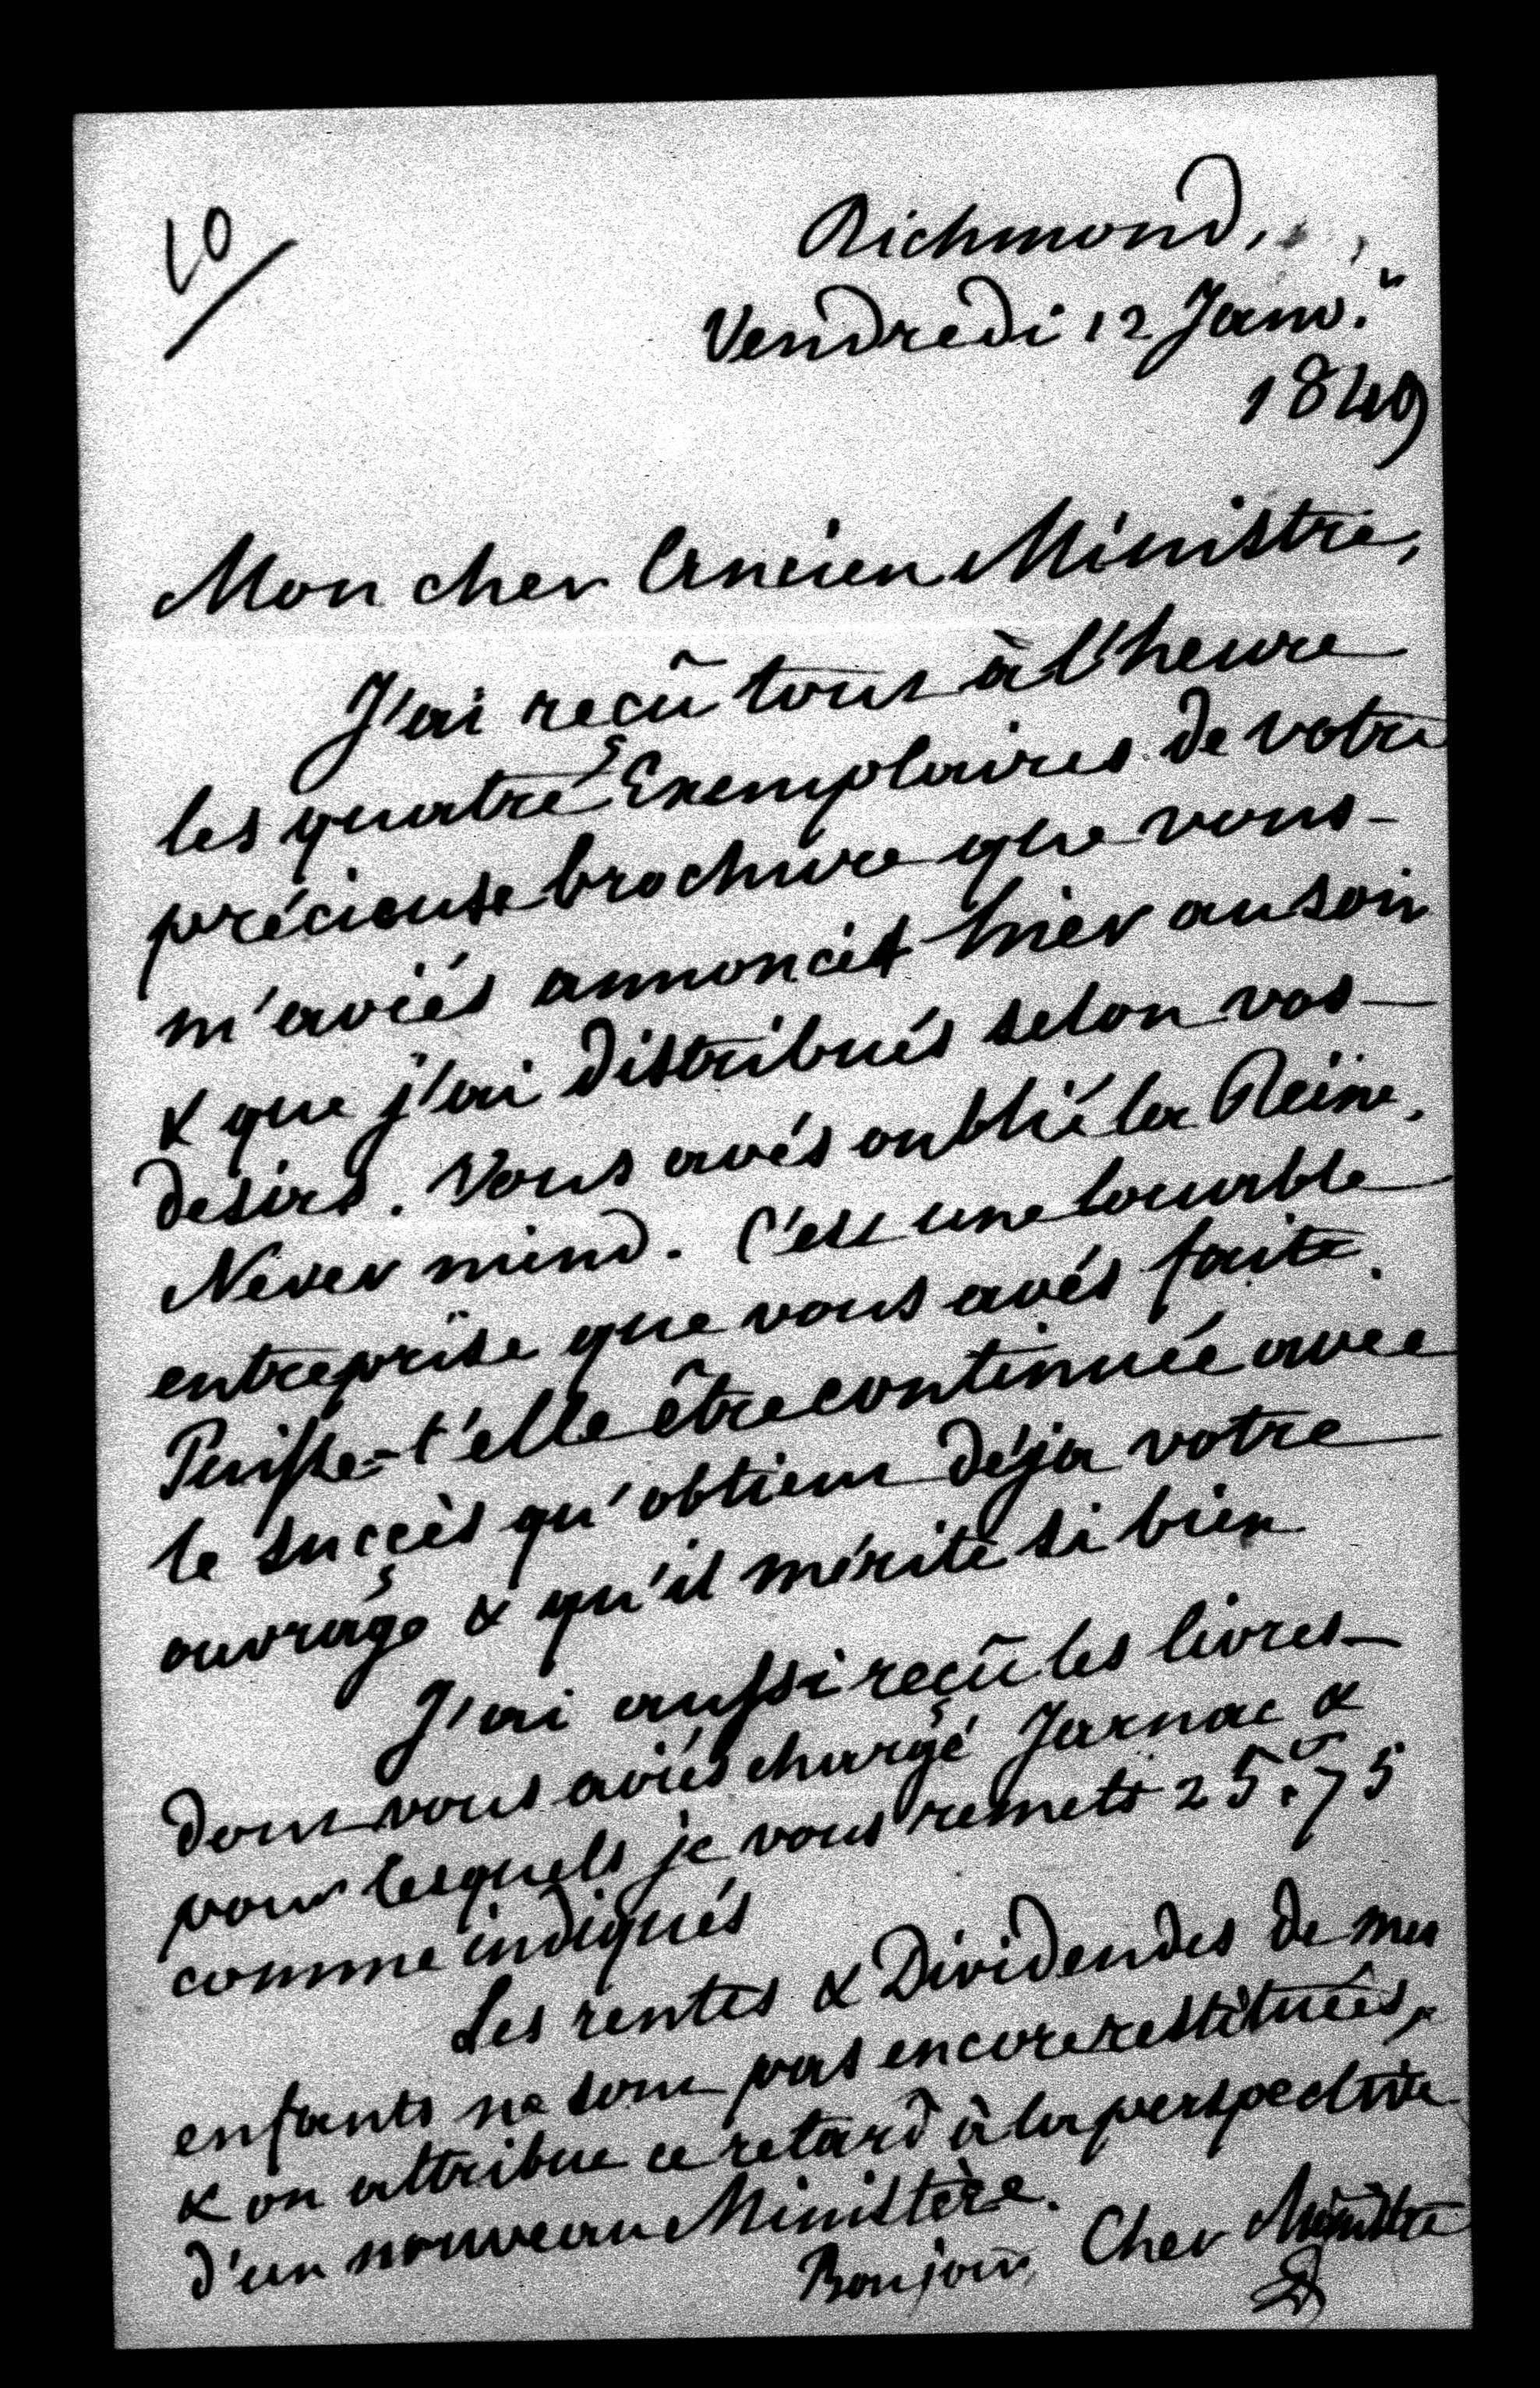 10
Richmond,
Vendredi 12 Janv.r
1849
Mon cher Ancien Ministre,
J'ai reçû tout à l'heure
les quatre Exemplaires de votre
précieuse brochure que vous
m'aviés annoncés hier au soir
& que j'ai distribués selon vos
desirs. Vous avés oublié la Reine.
Never mind. C'est une louable
entreprise que vous avés faite.
Puisse-t'elle être continuée avec
le succès qu'obtient déja votre
ouvrage & qu'il mérite si bien
J'ai aussi reçû les livres
dont vous aviés chargé Jarnac &
pour lesquels je vous remets 25.f 75
comme indiqués
Les rentes & Dividendes de mes
enfants ne sont pas encore restituées,
& on attribue ce retard à la perspective
d'un nouveau Ministère.
Bonjour, Cher Ministre